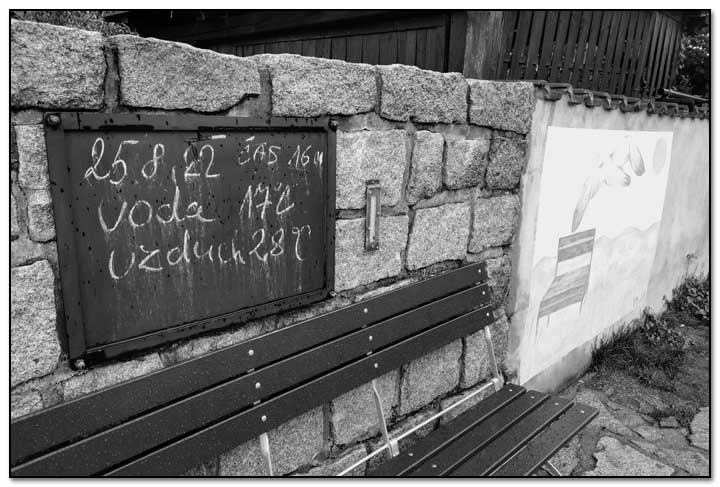 25.8.22 ČAS 16H
voda 17°C
vzduch 28°C